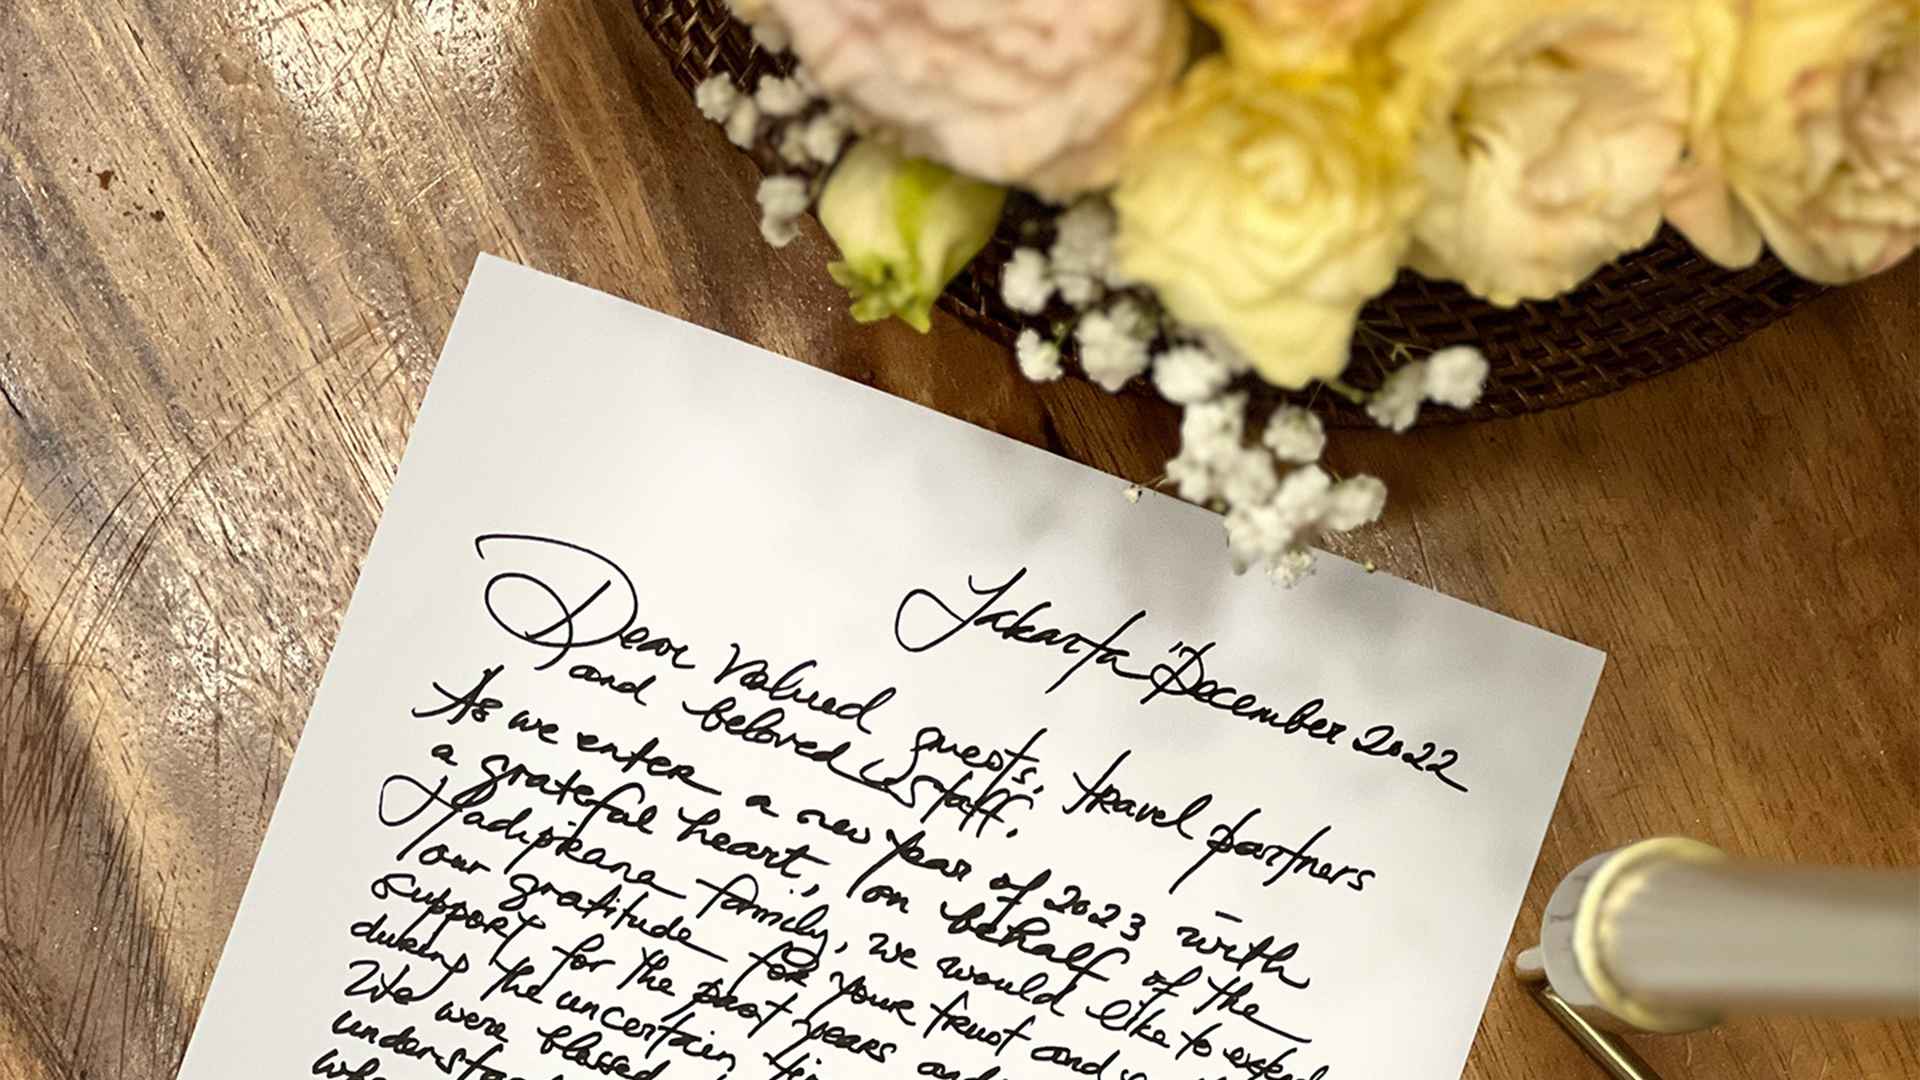 Jakarta December 2022
Dear Valued guests, travel partners
and beloved staff,
As we enter a new year of 2023 with
a grateful heart, on behalf of the
Hadiprana family, we would like to extend
our gratitude for your trust and
support for the past years and
during the uncertain
We were blessed